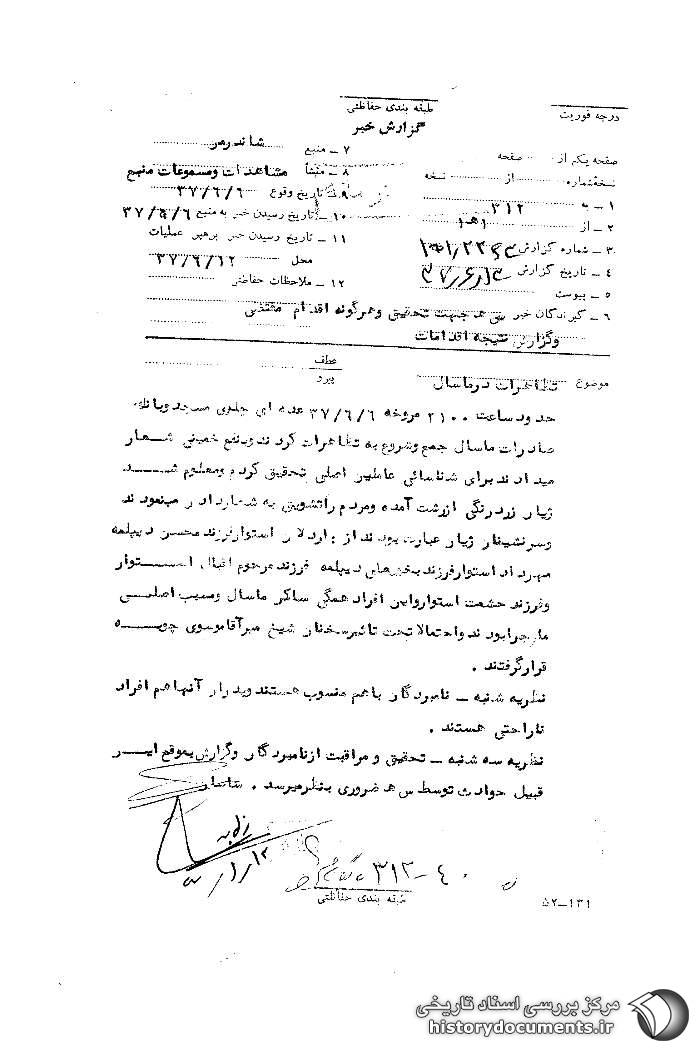 طبقه بندی حفاظتی
گزارش خبر
درجه فوریت
صفحه یکم از صفحه
نسخه شماره از نسخه
۱ - به ۳۱۲
۲ - از ۱ ه‍ ۱
۳ - شماره گزارش
۴ - تاریخ گزارش
۵ - پیوست
۶ - گیرندگان خبر س ه‍ جهت تحقیق و هرگونه اقدام مقتضی
وگزارش نتیجه اقدامات
۷ - منبع شاندرمن
۸ - منشأ مشاهدات ومسموعات منبع
۹ - تاریخ وقوع ۳۷/۶/۶
۱۰ - تاریخ رسیدن خبر به منبع ۳۷/۶/۶
۱۱ - تاریخ رسیدن خبر برهبر عملیات
محل ۳۷/۶/۱۲
۱۲ - ملاحظات حفاظتی
عطف
پیرو
موضوع تظاهرات درماسال
حدود ساعت ۲۱۰۰ مروخه ۳۷/۶/۶ عده ای جلوی مسجد وبانک
صادرات ماسال جمع وشروع به تظاهرات کردند وبنفع خمینی شعار
میدادند برای شناسائی عاملین اصلی تحقیق کردم ومعلوم شد
ژیان زردرنگی ازرشت آمده ومردم راتشویق به شعاردادن مینمودند
وسرنشینان ژیان عبارت بودند از : اردلان استوارفرزند محسن دیپلمه
مهرداد استوارفرزند دیپلمه فرزند مرحوم اقبال استوار
وفرزند حشمت استوارواین افراد همگی ساکن ماسال ومسبب اصلی
ماجرابودند واحتمالا تحت تاثیرسخنان شیخ میرآقاموسوی چوبه
قرارگرفتند .
نظریه شنبه - نامبردگان باهم منسوب هستند وپدران آنها هم افراد
ناراحتی هستند .
نظریه سه شنبه - تحقیق و مراقبت ازنامبردگان وگزارش بموقع این
قبیل حوادث توسط س ه‍ ضروری بنظرمیرسد .
۳۱۲-۴۰
طبقه بندی حفاظتی
۵۲-۱۳۱
مرکز بررسی اسناد تاریخی
historydocuments.ir